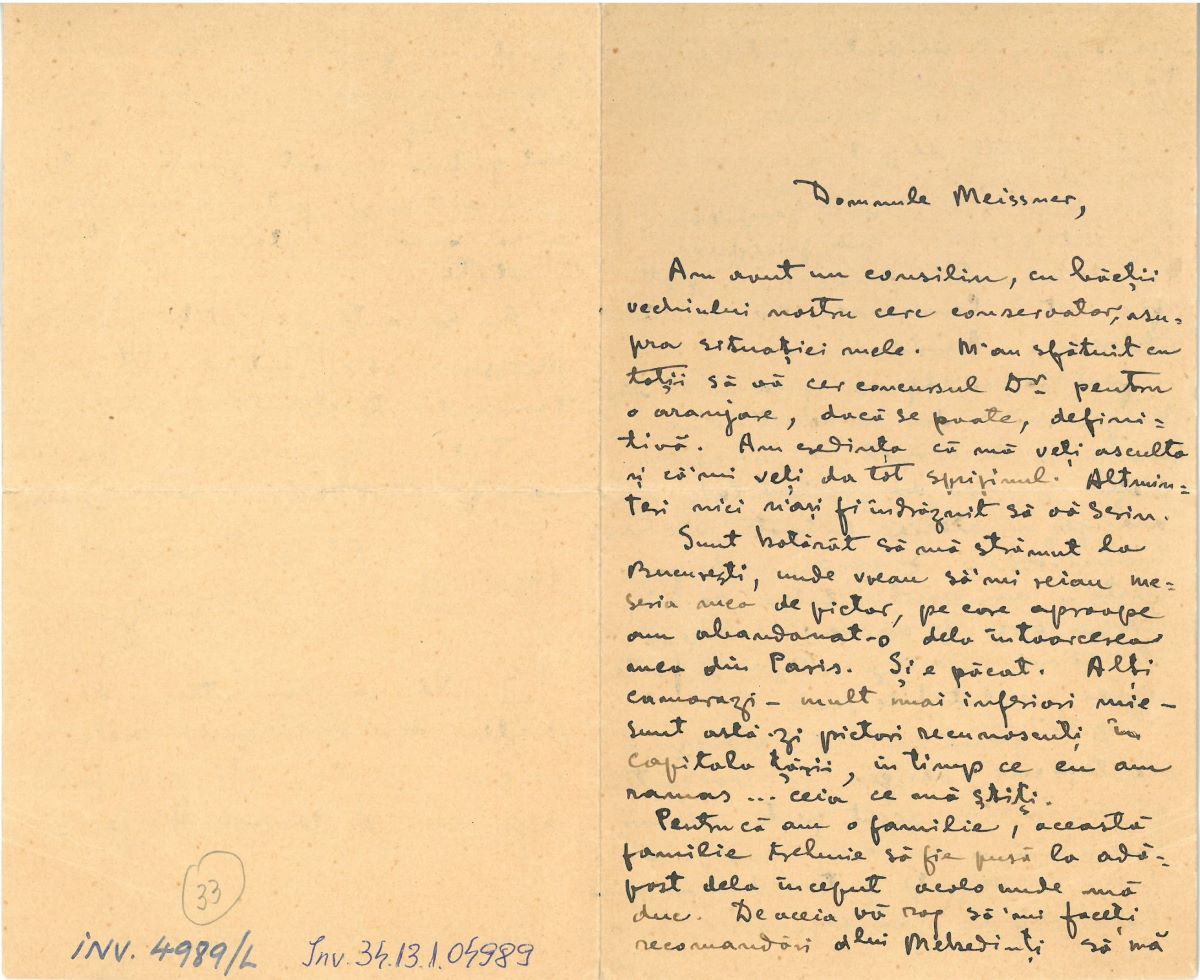 Domnule Meissner,
Am avut un consiliu, cu băeții
vechiului nostru cerc conservator, asu=
pra situației mele. M'au sfătuit cu
toții să vă cer concursul Dv. pentru
o aranjare, dacă se poate, defini=
tivă. Am credința că mă veți asculta
și că'mi veți da tot sprijinul. Altmin=
teri nici n'ași fi îndrăznit să vă scriu.
Sunt hotărât să mă strămut la
București, unde vreau să'mi reiau me=
seria mea de pictor, pe care aproape
am abandonat-o dela întoarcerea
mea din Paris. Și e păcat. Alți
camarazi – mult mai inferiori mie –
sunt astă-zi pictori recunoscuți în
capitala țării, în timp ce eu am
ramas ... ceia ce mă știți.
Pentrucă am o familie, această
familie trebuie să fie pusă la adă-
post dela început acolo unde mă
duc. De aceia vă rog să'mi faceți
recomandări dlui Mehedinți să mă
33
INV. 4989/L
Inv. 34.13.1.04989